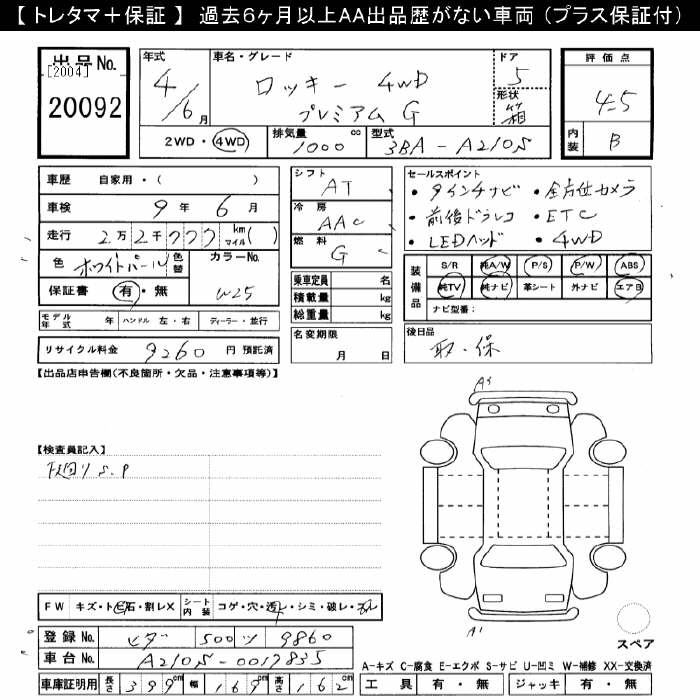 【 トレタマ＋保証 】 過去6ヶ月以上AA出品歴がない車両 (プラス保証付)
出品No.
[2004]
20092
年式
4/6月
車名・グレード
ロッキー 4WD
プレミアム G
ドア
5
形状
箱
評価点
4.5
内装
B
2WD・4WD
排気量
1000 cc
型式
3BA-A210S
車歴 自家用・( )
車検 9年 6月
走行 2万2千777 km マイル( )
色 ホワイトパール 色替
カラーNo. W25
保証書 有・無
モデル年式 年 ハンドル 左・右 ディーラー・並行
リサイクル料金 9260 円 預託済
シフト
AT
冷房
AAC
燃料
G
乗車定員 名
積載量 kg
総重量 kg
名変期限
月 日
セールスポイント
・9インチナビ ・全方位カメラ
・前後ドラレコ ・ETC
・LEDヘッド ・4WD
装備品
S/R 純A/W P/S P/W ABS
純TV 純ナビ 革シート 外ナビ エアB
ナビ型番：
後日品
取・保
【出品店申告欄(不良箇所・欠品・注意事項等)】
【検査員記入】
下廻り S.P
A1
A1
FW キズ・ト飛石・割レX
シート内装 コゲ・穴・透レ・シミ・破レ・
登録No. 500 ツ 9860
車台No. A210S-0017835
車庫証明用 長さ 399cm 幅 169cm 高さ 162cm
スペア
A-キズ C-腐食 E-エクボ S-サビ U-凹ミ W-補修 XX-交換済
工具 有・無 ジャッキ 有・無